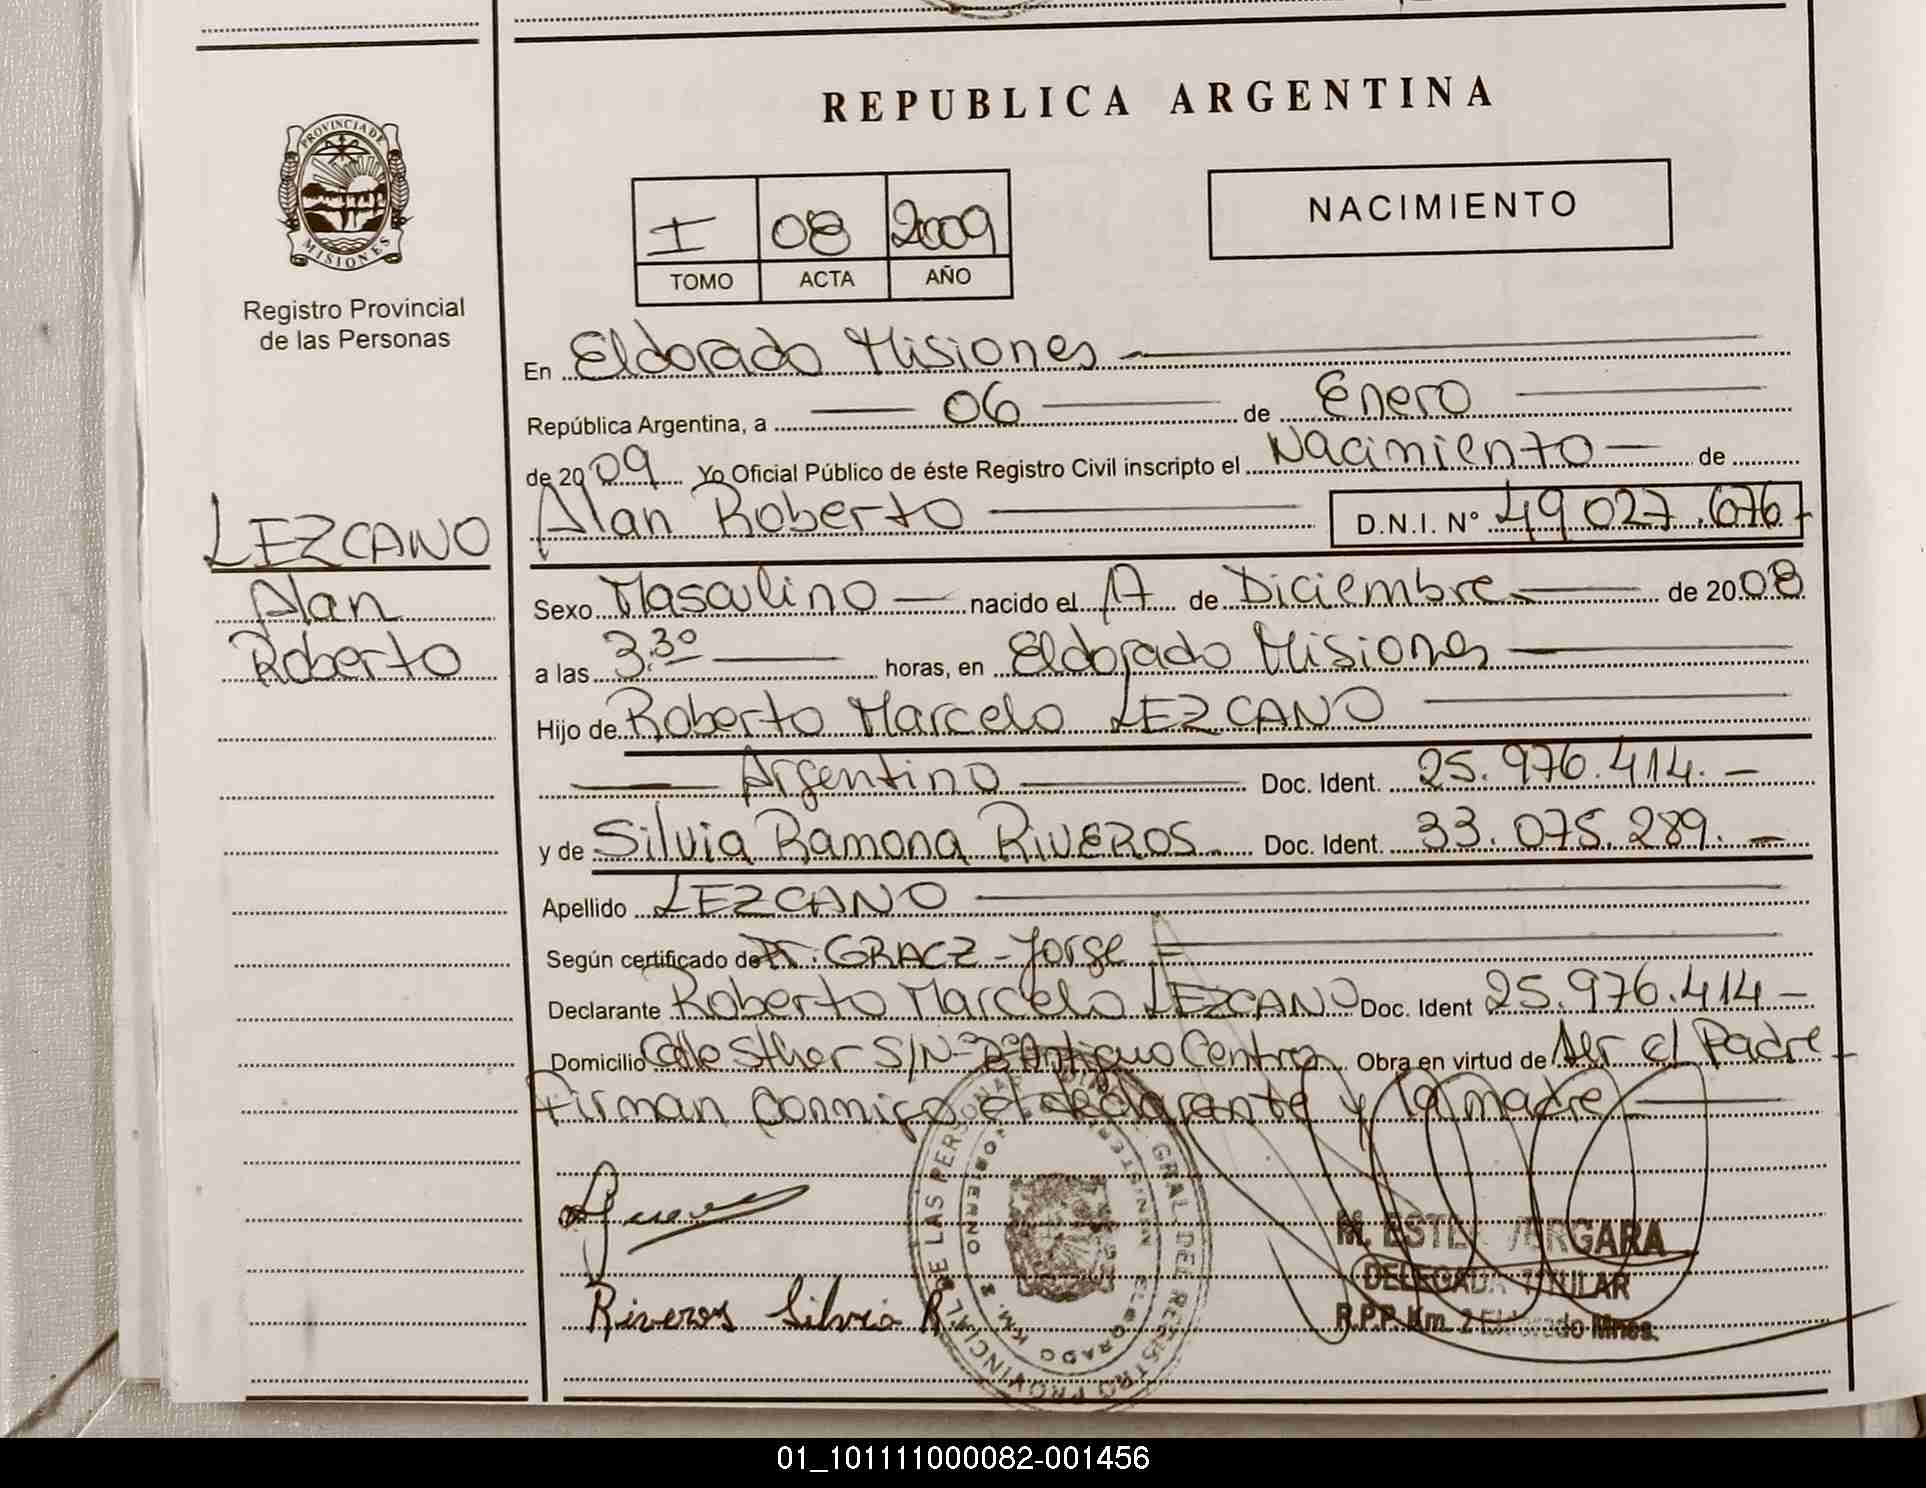 REPUBLICA ARGENTINA
PROVINCIA DE
MISIONES
Registro Provincial
de las Personas
I 08 2009
TOMO ACTA AÑO
NACIMIENTO
En Eldorado Misiones
República Argentina, a 06 de Enero
de 2009 Yo Oficial Público de éste Registro Civil inscripto el Nacimiento de
LEZCANO
Alan
Roberto
Alan Roberto D.N.I. Nº 49 027.676
Sexo Masculino nacido el 17 de Diciembre de 2008
a las 3.30 horas, en Eldorado Misiones
Hijo de Roberto Marcelo LEZCANO
Argentino Doc. Ident. 25.976.414.
y de Silvia Ramona RIVEROS Doc. Ident. 33.075.289.
Apellido LEZCANO
Según certificado de Dr. GRACZ - Jorge
Declarante Roberto Marcelo LEZCANO Doc. Ident 25.976.414
Domicilio Calle Sther S/N - Antiguo Centro Obra en virtud de ser el Padre
Firman conmigo el declarante y la madre
Riveros Silvia R.
M. ESTER VERGARA
DELEGADA TITULAR
R.P.P. Km. 2 Eldorado Mnes.
01_101111000082-001456